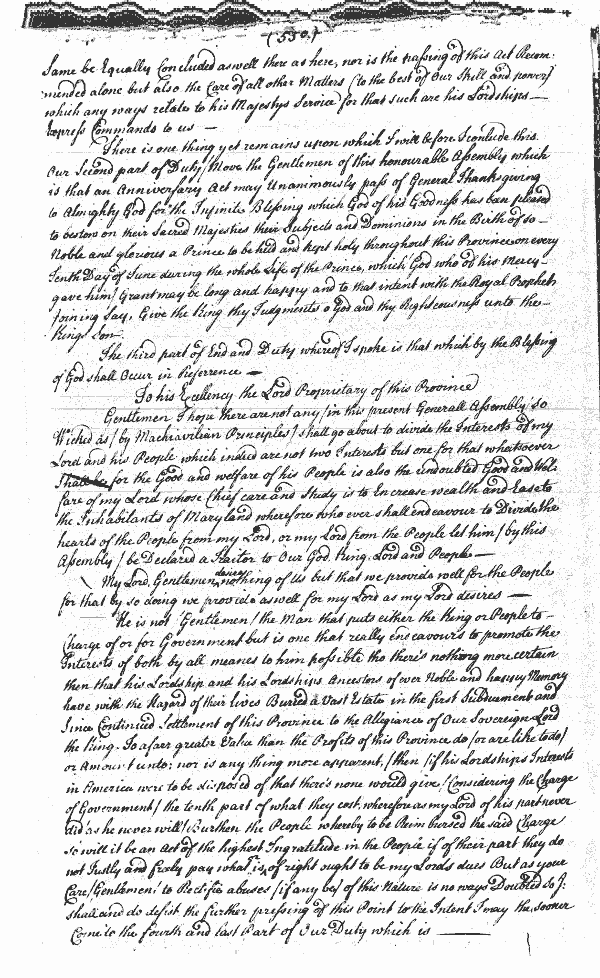 (550.)
Same be Equally Concluded aswell there as here, nor is the passing of this Act Recom-
mended alone but also the Care of all other Matters (to the best of Our Skill and power)
which any ways relate to his Majestys Service for that such are his Lordships
Express Commands to us —
There is one thing yet remains upon which I will before I conclude this
Our Second part of Duty/ Move the Gentlemen of this honourable Assembly which
is that an Anniversary Act may Unanimously pass of General Thanksgiving
to Almighty God for the Infinite Blessing which God of his Goodness has been pleased
to bestow on their Sacred Majesties their Subjects and Dominions in the Birth of so
Noble and glorious a Prince to be held and kept holy throughout this Province on every
Tenth Day of June during the whole Life of the Prince, which God who of his Mercy
gave him/ Grant may be long and happy and to that intent with the Royal Prophet
joining say, Give the King thy Judgments o God and thy Righteousness unto the
Kings Son.
The third part of End and Duty whereof I spoke is that which by the Blessing
of God shall Occur in Reference —
To his Excellency the Lord Proprietary of this Province
Gentlemen I hope there are not any/ in this present Generall Assembly/ so
Wicked as/ by Machiavilian Principles/ shall go about to divide the Interests of my
Lord and his People which indeed are not two Interests but one for that whatsoever
for the Good and welfare of his People is also the undoubted Good and Wel-
fare of my Lord whose Chief care and Study is to Encrease wealth and Ease to
the Inhabitants of Maryland wherefore who ever shall endeavour to Divide the
hearts of the People from my Lord, or my Lord from the People let him/ by this
Assembly/ be Declared a Traitor to Our God, King, Lord and People —
My Lord, Gentlemen, desires nothing of us but that we provide well for the People
for that by so doing we provide aswell for my Lord as my Lord desires —
He is not/ Gentlemen/ the Man that puts either the King or People to
Charge of or for Government but is one that really endeavours to promote the
Interests of both by all meanes to him possible tho there's nothing more certain
then that his Lordship and his Lordships Ancestors of ever Noble and happy Memory
have with the Hazard of their lives Buried a Vast Estate in the first Subduement and
Since Continued Settlement of this Province to the Allegiance of Our Sovereign Lord
the King. To a farr greater Value than the Profits of this Province do/ or are like to do/
or Amount unto; nor is any thing more apparent/ then/ if his Lordships Interests
in America were to be disposed of that there's none would give/ Considering the Charge
of Government/ the tenth part of what they cost, wherefore as my Lord of his part never
did as he never will/ Burthen the People whereby to be Reimbursed the said Charge
so will it be an Act of the highest Ingratitude in the People if of their part they do
not Justly and freely pay what is, of right ought to be my Lords dues But as your
Care/ Gentlemen/ to Rectifie abuses/ if any be/ of this Nature is no ways Doubted so I
shall and do desist the further pressing of this Point to the Intent I may the sooner
Come to the fourth and last Part of Our Duty which is —